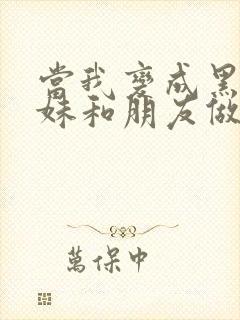 當我變成黑
妹和朋友做
萬保中